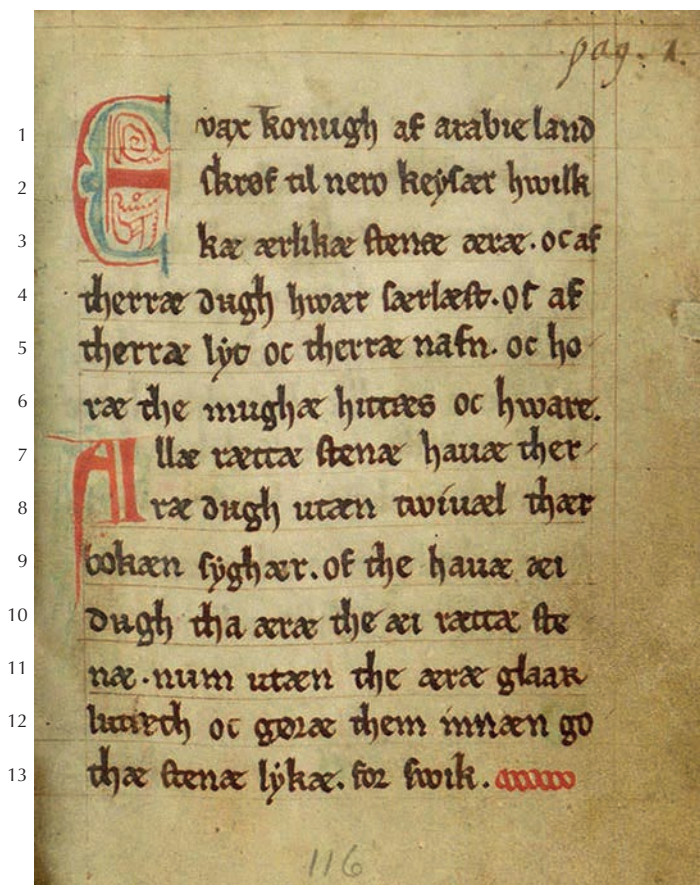 pag. 1.
1 Evax konugh af arabie land
2 skrøf til nero keysær hwilk
3 kæ ærlikæ stenæ æræ. oc af
4 therræ dugh hwær særlæst. Oc af
5 therræ lyt oc therræ nafn. oc ho
6 ræ the mughæ hittæs oc hware.
7 Allæ rættæ stenæ hauæ ther
8 ræ dugh utæn twiuæl thær
9 bokæn syghær. of the hauæ æi
10 dugh tha æræ the æi rættæ ste
11 næ. num utæn the æræ glaar
12 luttæth oc gøræ them innæn go
13 thæ stenæ lykæ. for swik.
116